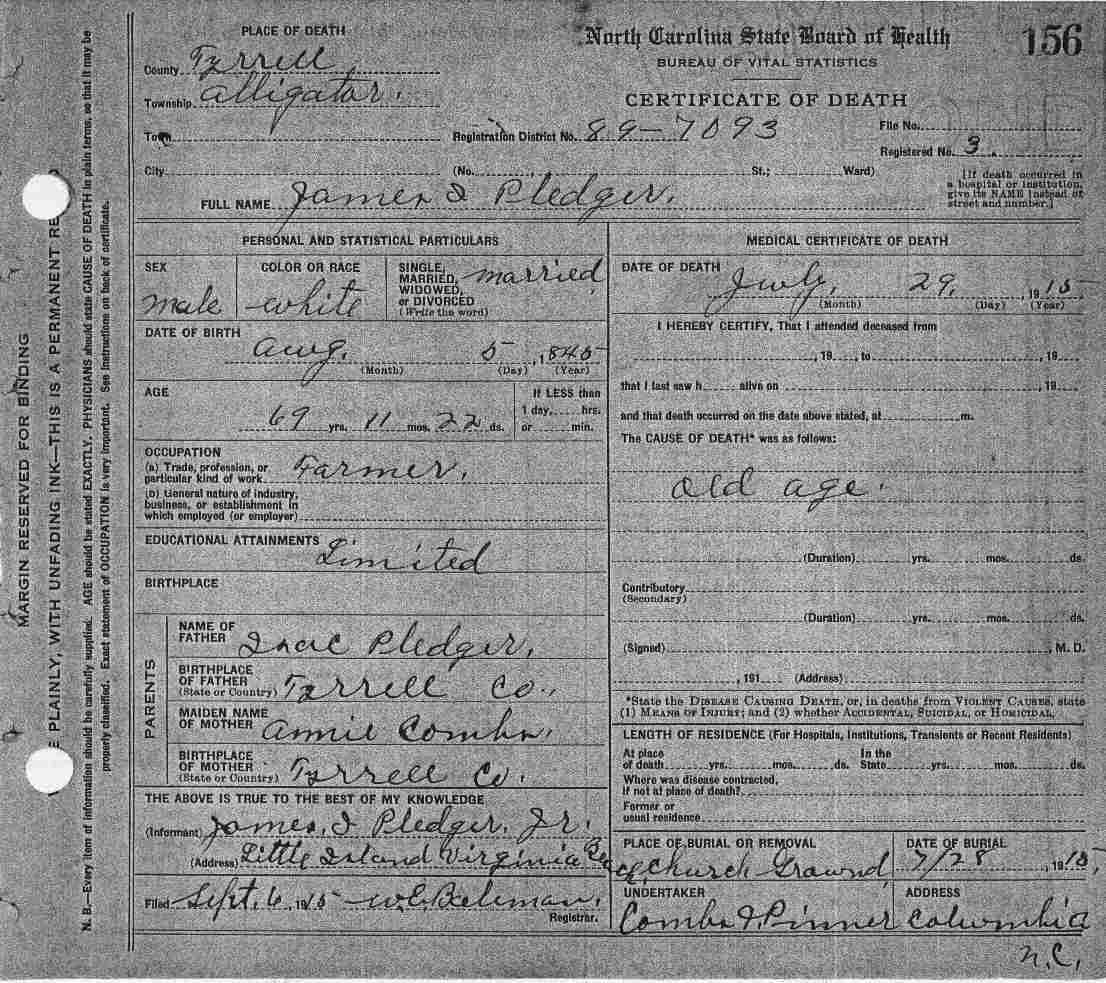 North Carolina State Board of Health
156
BUREAU OF VITAL STATISTICS
CERTIFICATE OF DEATH
PLACE OF DEATH
County Tyrrell
Township Alligator.
Town
Registration District No. 89-7093
File No.
Registered No. 3.
City
(No. St.; Ward)
[If death occurred in
a hospital or institution,
give its NAME instead of
street and number.]
FULL NAME James I Pledger.
PERSONAL AND STATISTICAL PARTICULARS
SEX
male
COLOR OR RACE
white
SINGLE,
MARRIED,
WIDOWED,
or DIVORCED
(Write the word)
married
DATE OF BIRTH
Aug. 5, 1845
(Month) (Day) (Year)
AGE
69 yrs. 11 mos. 22 ds.
If LESS than
1 day, hrs.
or min.
OCCUPATION
(a) Trade, profession, or
particular kind of work Farmer.
(b) General nature of industry,
business, or establishment in
which employed (or employer)
EDUCATIONAL ATTAINMENTS Limited
BIRTHPLACE
PARENTS
NAME OF
FATHER Isac Pledger,
BIRTHPLACE
OF FATHER
(State or Country) Tyrrell Co.,
MAIDEN NAME
OF MOTHER Annie Combs,
BIRTHPLACE
OF MOTHER
(State or Country) Tyrrell Co.
THE ABOVE IS TRUE TO THE BEST OF MY KNOWLEDGE
(Informant) James, I Pledger, Jr.
(Address) Little Island Virginia Beach
Filed Sept. 6, 1915 W.C.
Registrar.
MEDICAL CERTIFICATE OF DEATH
DATE OF DEATH
July, 29, 1915
(Month) (Day) (Year)
I HEREBY CERTIFY, That I attended deceased from
, 19 , to , 19
that I last saw h alive on , 19
and that death occurred on the date above stated, at m.
The CAUSE OF DEATH* was as follows:
Old age.
(Duration) yrs. mos. ds.
Contributory
(Secondary)
(Duration) yrs. mos. ds.
(Signed) , M. D.
, 191 (Address)
*State the DISEASE CAUSING DEATH, or, in deaths from VIOLENT CAUSES, state
(1) MEANS OF INJURY; and (2) whether ACCIDENTAL, SUICIDAL, or HOMICIDAL.
LENGTH OF RESIDENCE (For Hospitals, Institutions, Transients or Recent Residents)
At place
of death yrs. mos. ds.
In the
State yrs. mos. ds.
Where was disease contracted,
if not at place of death?
Former or
usual residence
PLACE OF BURIAL OR REMOVAL
Church Grownd
DATE OF BURIAL
7/28, 1915
UNDERTAKER
Combs & Pinner
ADDRESS
Columbia
N.C.
MARGIN RESERVED FOR BINDING
PLAINLY, WITH UNFADING INK—THIS IS A PERMANENT RE
N. B.—Every item of information should be carefully supplied. AGE should be stated EXACTLY. PHYSICIANS should state CAUSE OF DEATH in plain terms, so that it may be
properly classified. Exact statement of OCCUPATION is very important. See instructions on back of certificate.